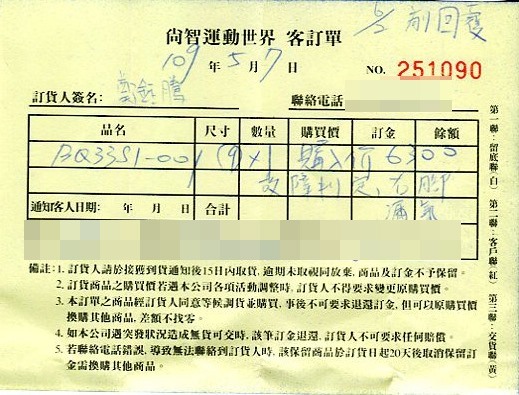 尚智運動世界 客訂單
5/2 前回覆
109 年 5 月 7 日
NO. 251090
訂貨人簽名:
聯絡電話
品名 尺寸 數量 購買價 訂金 餘額
BQ3351-001 (9) x1 購入價 6300
故障判定、右腳
漏氣
通知客人日期: 年 月 日 合計
備註:1. 訂貨人請於接獲到貨通知後15日內取貨, 逾期未取視同放棄, 商品及訂金不予保留。
2. 訂貨商品之購買價若遇本公司各項活動調整時, 訂貨人不得要求變更原購買價。
3. 本訂單之商品經訂貨人同意等候調貨並購買, 事後不可要求退還訂金, 但可以原購買價
換購其他商品, 差額不找零。
4. 如本公司遇突發狀況造成無貨可交時, 該筆訂金退還, 訂貨人不可要求任何賠償。
5. 若聯絡電話錯誤, 導致無法聯絡到訂貨人時, 該保留商品於訂貨日起20天後取消保留訂
金需換購其他商品。
第一聯:留底聯(白) 第二聯:客戶聯(紅) 第三聯:交貨聯(黃)